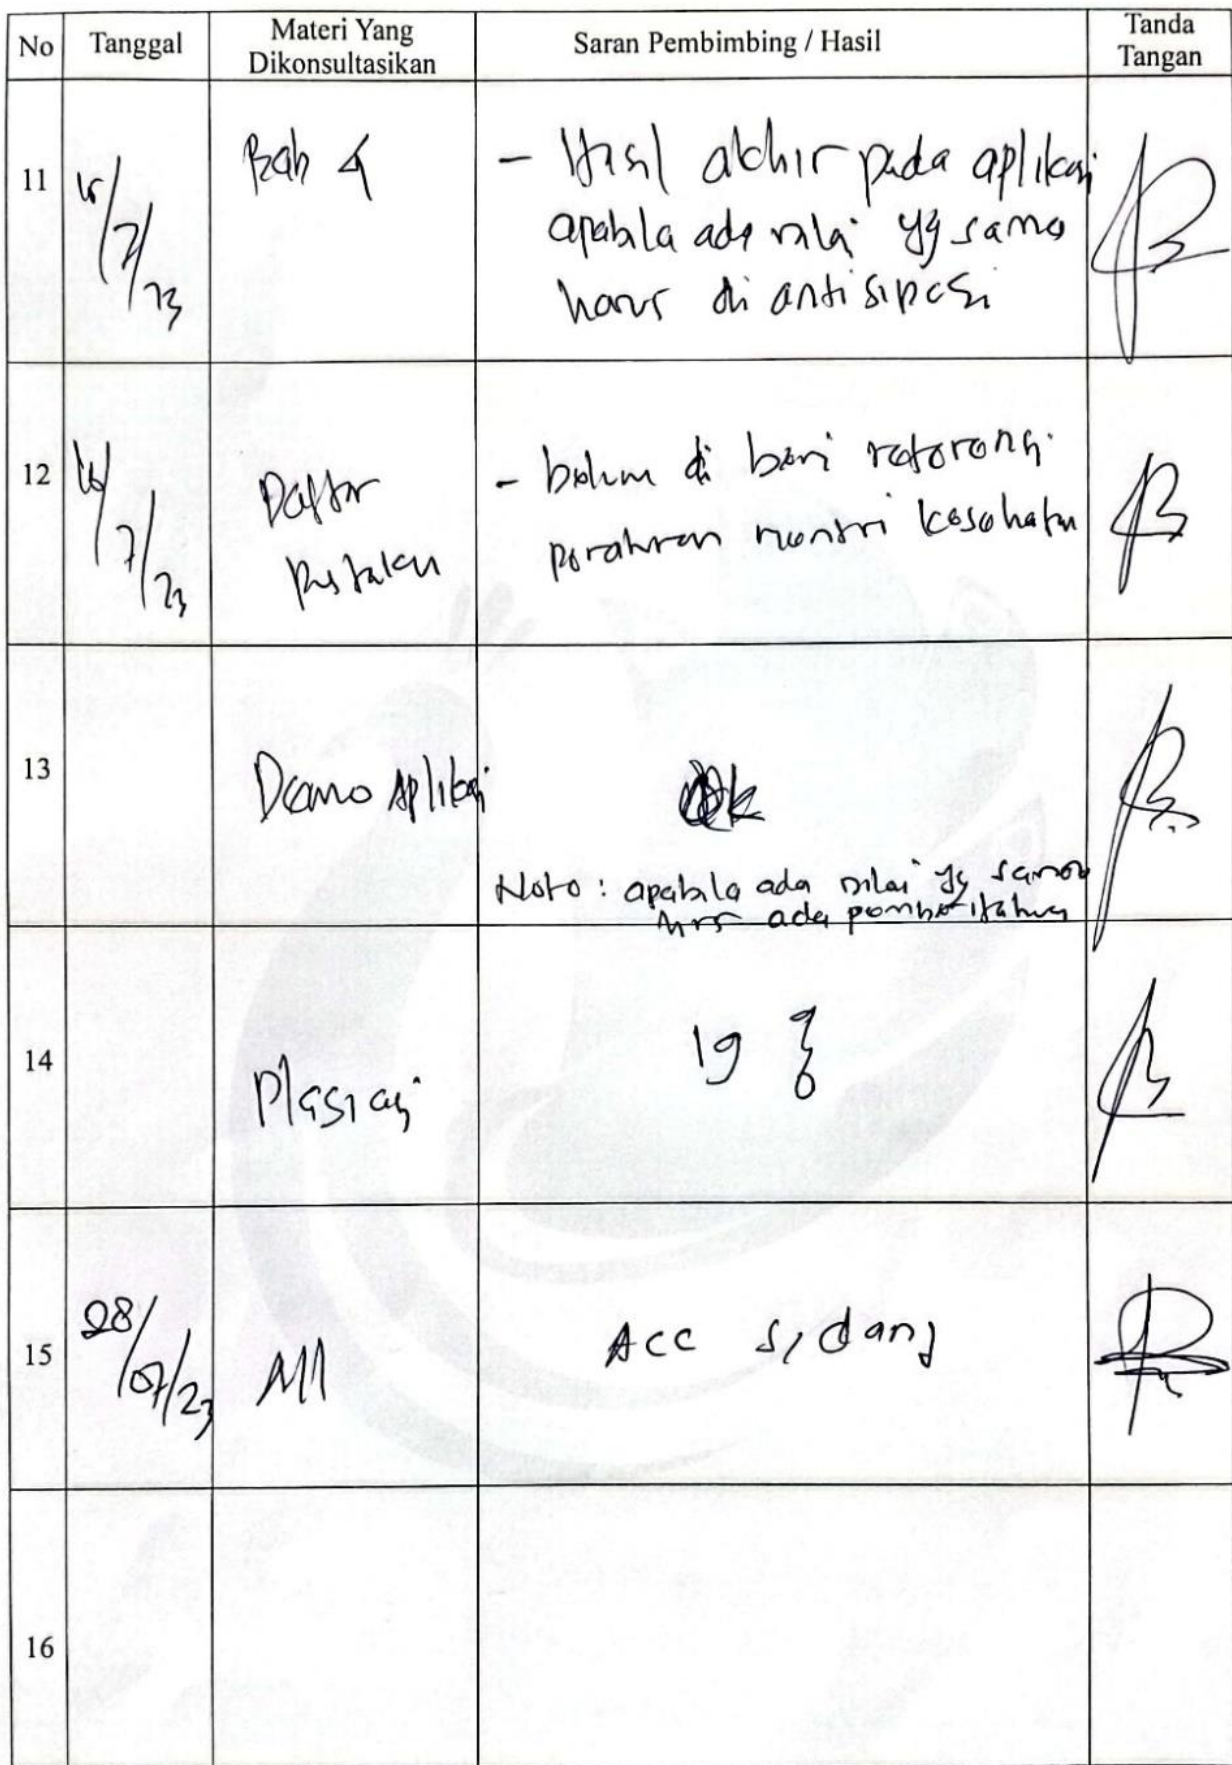 No Tanggal Materi Yang Dikonsultasikan Saran Pembimbing / Hasil Tanda Tangan
11 /7/23 Bab 4 - Hasil akhir pada aplikasi
apabila ada nilai yg sama
harus di antisipasi
12 /7/23 Daftar Pustaka - belum di beri referensi
peraturan mentri kesehatan
13 Demo Aplikasi Ok
Note : apabila ada nilai yg sama
hrs ada pemberitahuan
14 Plagiasi 19 %
15 28/07/23 All Acc sidang
16